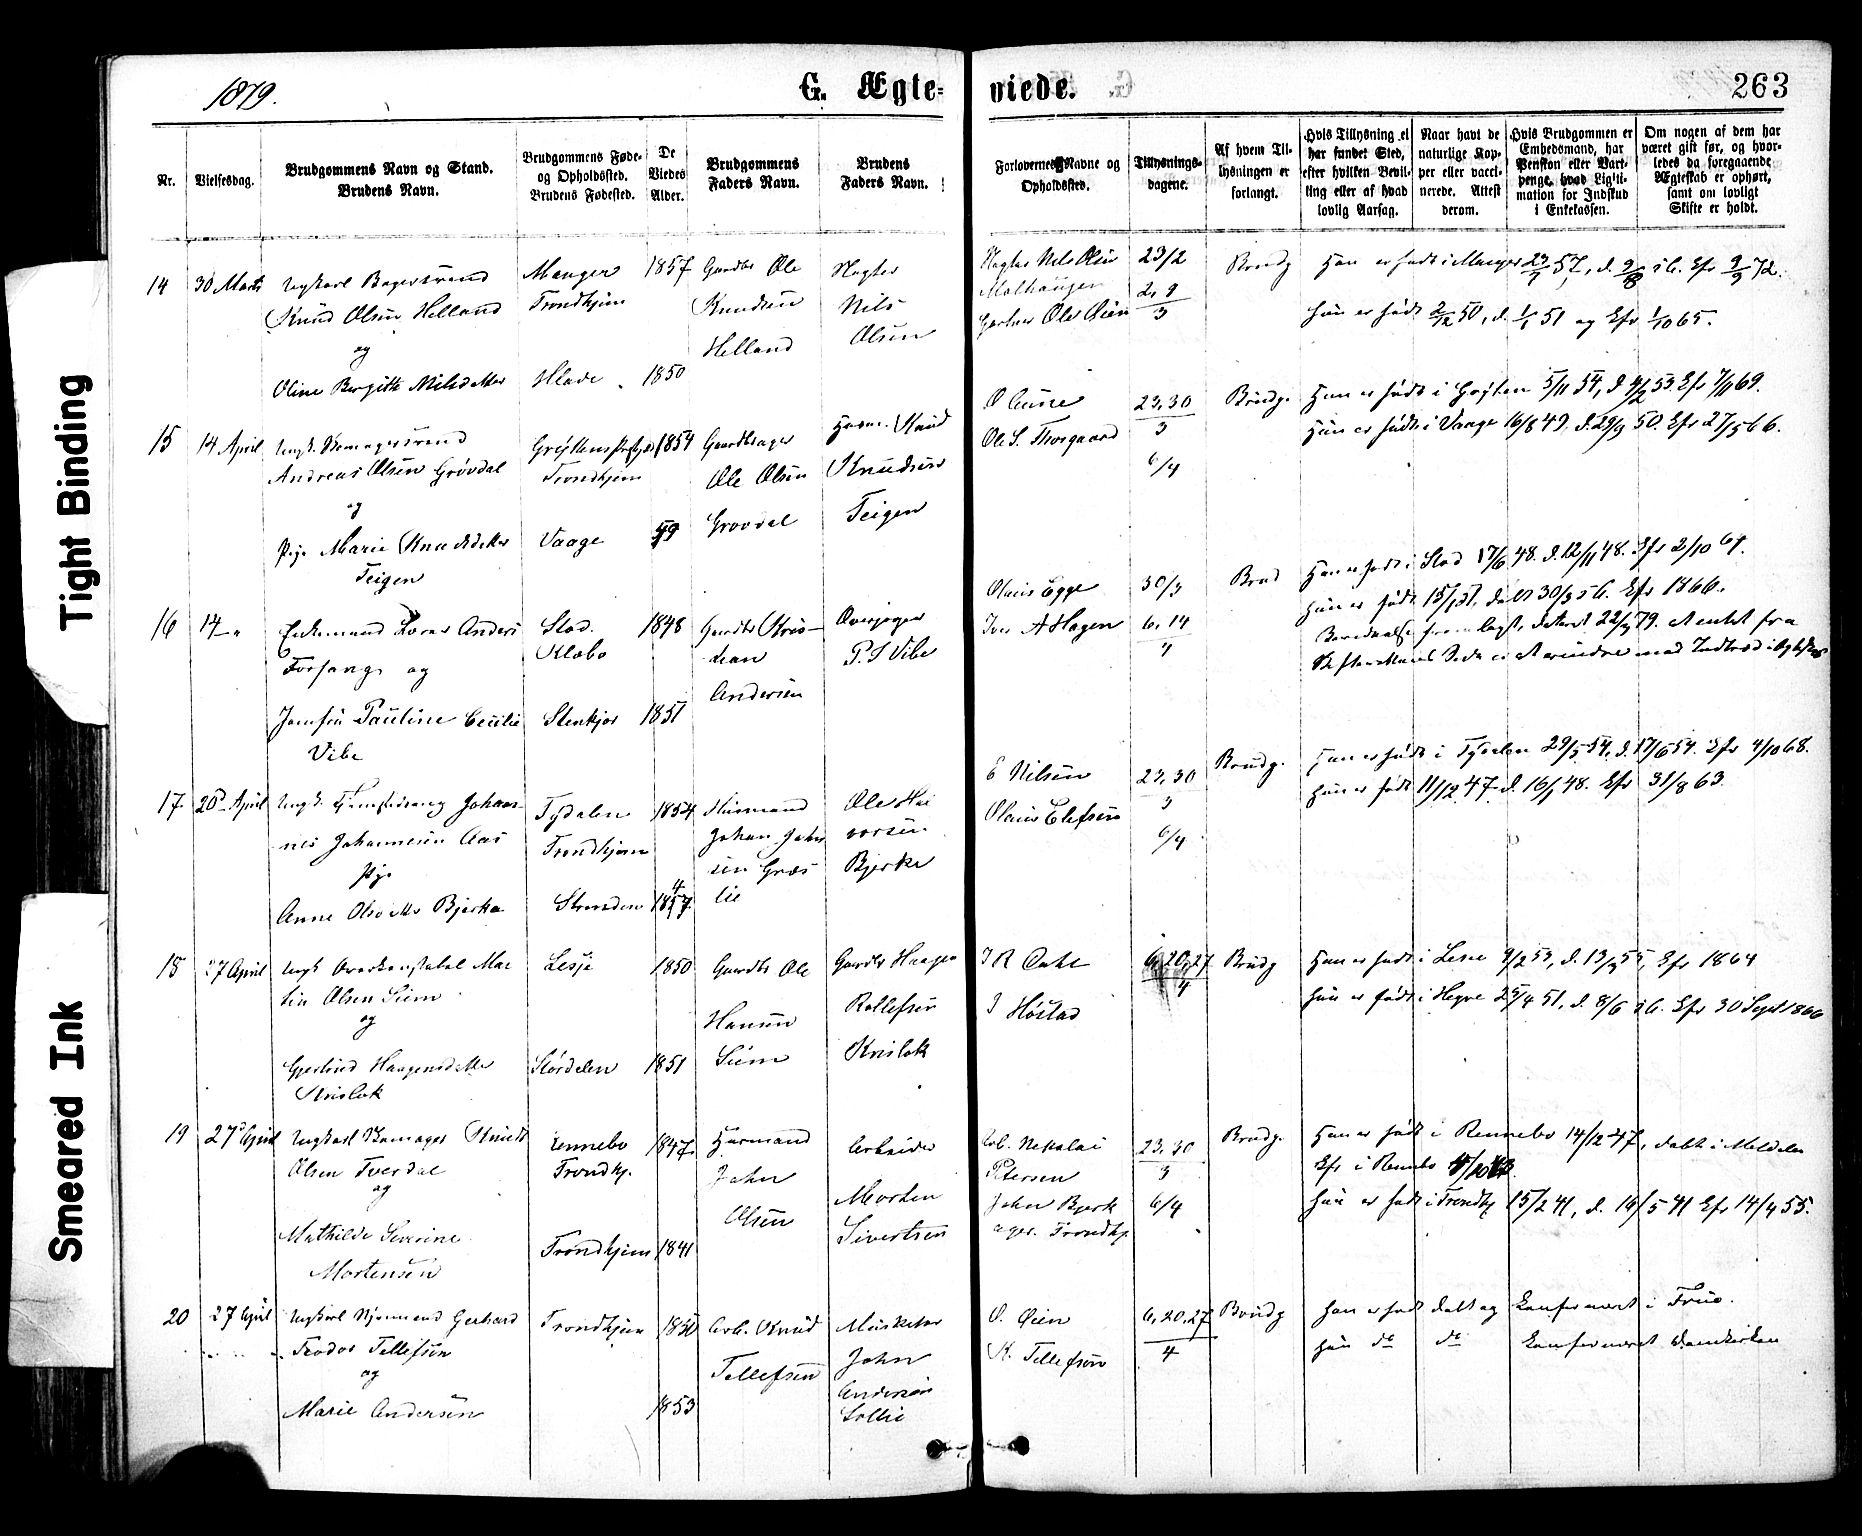 1879.
G. Ægte-
viede.
263
Nr.
Vielsesdag.
Brudgommens Navn og Stand.
Brudens Navn.
Brudgommens Føde-
og Opholdssted.
Brudens Fødested.
De
Viedes
Alder.
Brudgommens
Faders Navn.
Brudens
Faders Navn.
Forlovernes Navne og
Opholdssted.
Tillysnings-
dagene.
Af hvem Til-
lysningen er
forlangt.
Hvis Tillysning ei
har fundet Sted,
efter hvilken Bevil-
ling eller af hvad
lovlig Aarsag.
Naar havt de
naturlige Kop-
per eller vacci-
nerede. Attest
derom.
Hvis Brudgommen er
Embedsmand, har
Pension eller Vart-
penge, hvad Legiti-
mation for Indskud
i Enkekassen.
Om nogen af dem har
været gift før, og hvor-
ledes da foregaaende
Ægteskab er ophørt,
samt om lovligt
Skifte er holdt.
14
30 Marts
Ungkarl Bagersvend
Knud Olsen Helland
og
Oline Bergitte Nilsdatter
Manger
Trondhjem
Hlade
1857
1850
Gaardbr Ole
Knudsen
Helland
Nils
Olsen
Nils Olsen
Molhaugen
Gartner Ole Øien
23/2
2, 9
3
Brudg
Han er født i Manger 29/7 57, d. 9/8 s. A. Cfr 9/9 72.
Hun er født 2/12 50, d. 1/1 51 og Cfr 1/10 65.
15
14 April
Ungk.
Andreas Olsen Grøvdal
og
Pige Marie Knudsdatter
Teigen
Trondhjem
Vaage
1854
49
Ole Olsen
Grovdal
Knud
Knudsen
Teigen
O Aune
Ole S. Thorgaard
23, 30
3
6/4
Brudg.
Han er født i Grÿtten 5/11 54, d. Cfr 7/11 69.
Hun er født i Vaage 16/8 49, d. 29/9 50. Cfr 27/5 66.
16
14 "
Enkemand Anders
Forfang og
Jomfru Pauline Cecilie
Vibe
Stod.
Klæbo
Stenkjær
1848
1851
Gaardbr Kris-
tian
Andersen
P. S Vibe
Olaus Egge
Iver A Hagen
30/3
6, 14
4
Brud
Han er født i Stod 17/6 48. d. 12/11 48. Cfr 2/10 64.
Hun er født 15/1 51, døbt 30/3 51. Cfr 1866.
fremlagt, dateret 22/3 79. Attest fra
Skifteretten
17
20de April
Ungk. Johan-
nes Johannesen Aas
Pige
Anne Olsdatter Bjerke
Tydalen
Trondhjem
Strinden
1854
1847
Husmand
Johan Johan
sen Græs
lie
Ole Hal
vorsen
Bjerke
E Nilsen
Olaus Elefsen
23, 30
3
6/4
Brudg.
Han er født i Tydalen 29/5 54, d. 17/6 54. Cfr 4/10 68.
Hun er født 11/12 47. d. 16/1 48. Cfr 31/8 63.
18
27 April
Ungk Mar
tin Olsen Siem
og
Gjertrud Haagensdatter
Krislok
Lesje
Størdalen
1850
1851
Gaardbr Ole
Hansen
Siem
Gaardbr Haagen
Rollefsen
Krislok
I R Dahl
I Høstad
6, 20, 27
4
Brudg
Han er født i Lesje 9/2 53, d. 13/3 53, Cfr 1864
Hun er født i Hegre 25/4 51, d. 8/6 s. A. Cfr 30 Sept 1866
19
27 April
Ungkarl Skomager Knud
Olsen Tverdal
og
Mathilde Severine
Mortensen
Rennebo
Trondhj.
Trondhjem
1847
1841
Husmand
John
Olsen
Arbeider
Morten
Sivertsen
Arb. Nekolai
Petersen
John Bjerk
ager. Trondhj.
23, 30
3
6/4
Brudg.
Han er født i Rennebo 14/12 47, døbt i Meldalen
Cfr i Rennebo
Hun er født i Trondhj 15/2 41, d. 16/5 41 Cfr 14/4 55.
20
27 April
Ungkarl Gerhard
Teodor Tellefsen
og
Marie Andersen
Trondhjem
1850
1853
Arb. Knud
Tellefsen
Musketer
John
Andersen
Lollie
O. Øien
K. Tellefsen
6, 20, 27
4
Brudg
Han er født døbt og konfirmeret i Frue.
Hun do do konfirmeret Domkirken
Tight Binding
Smeared Ink